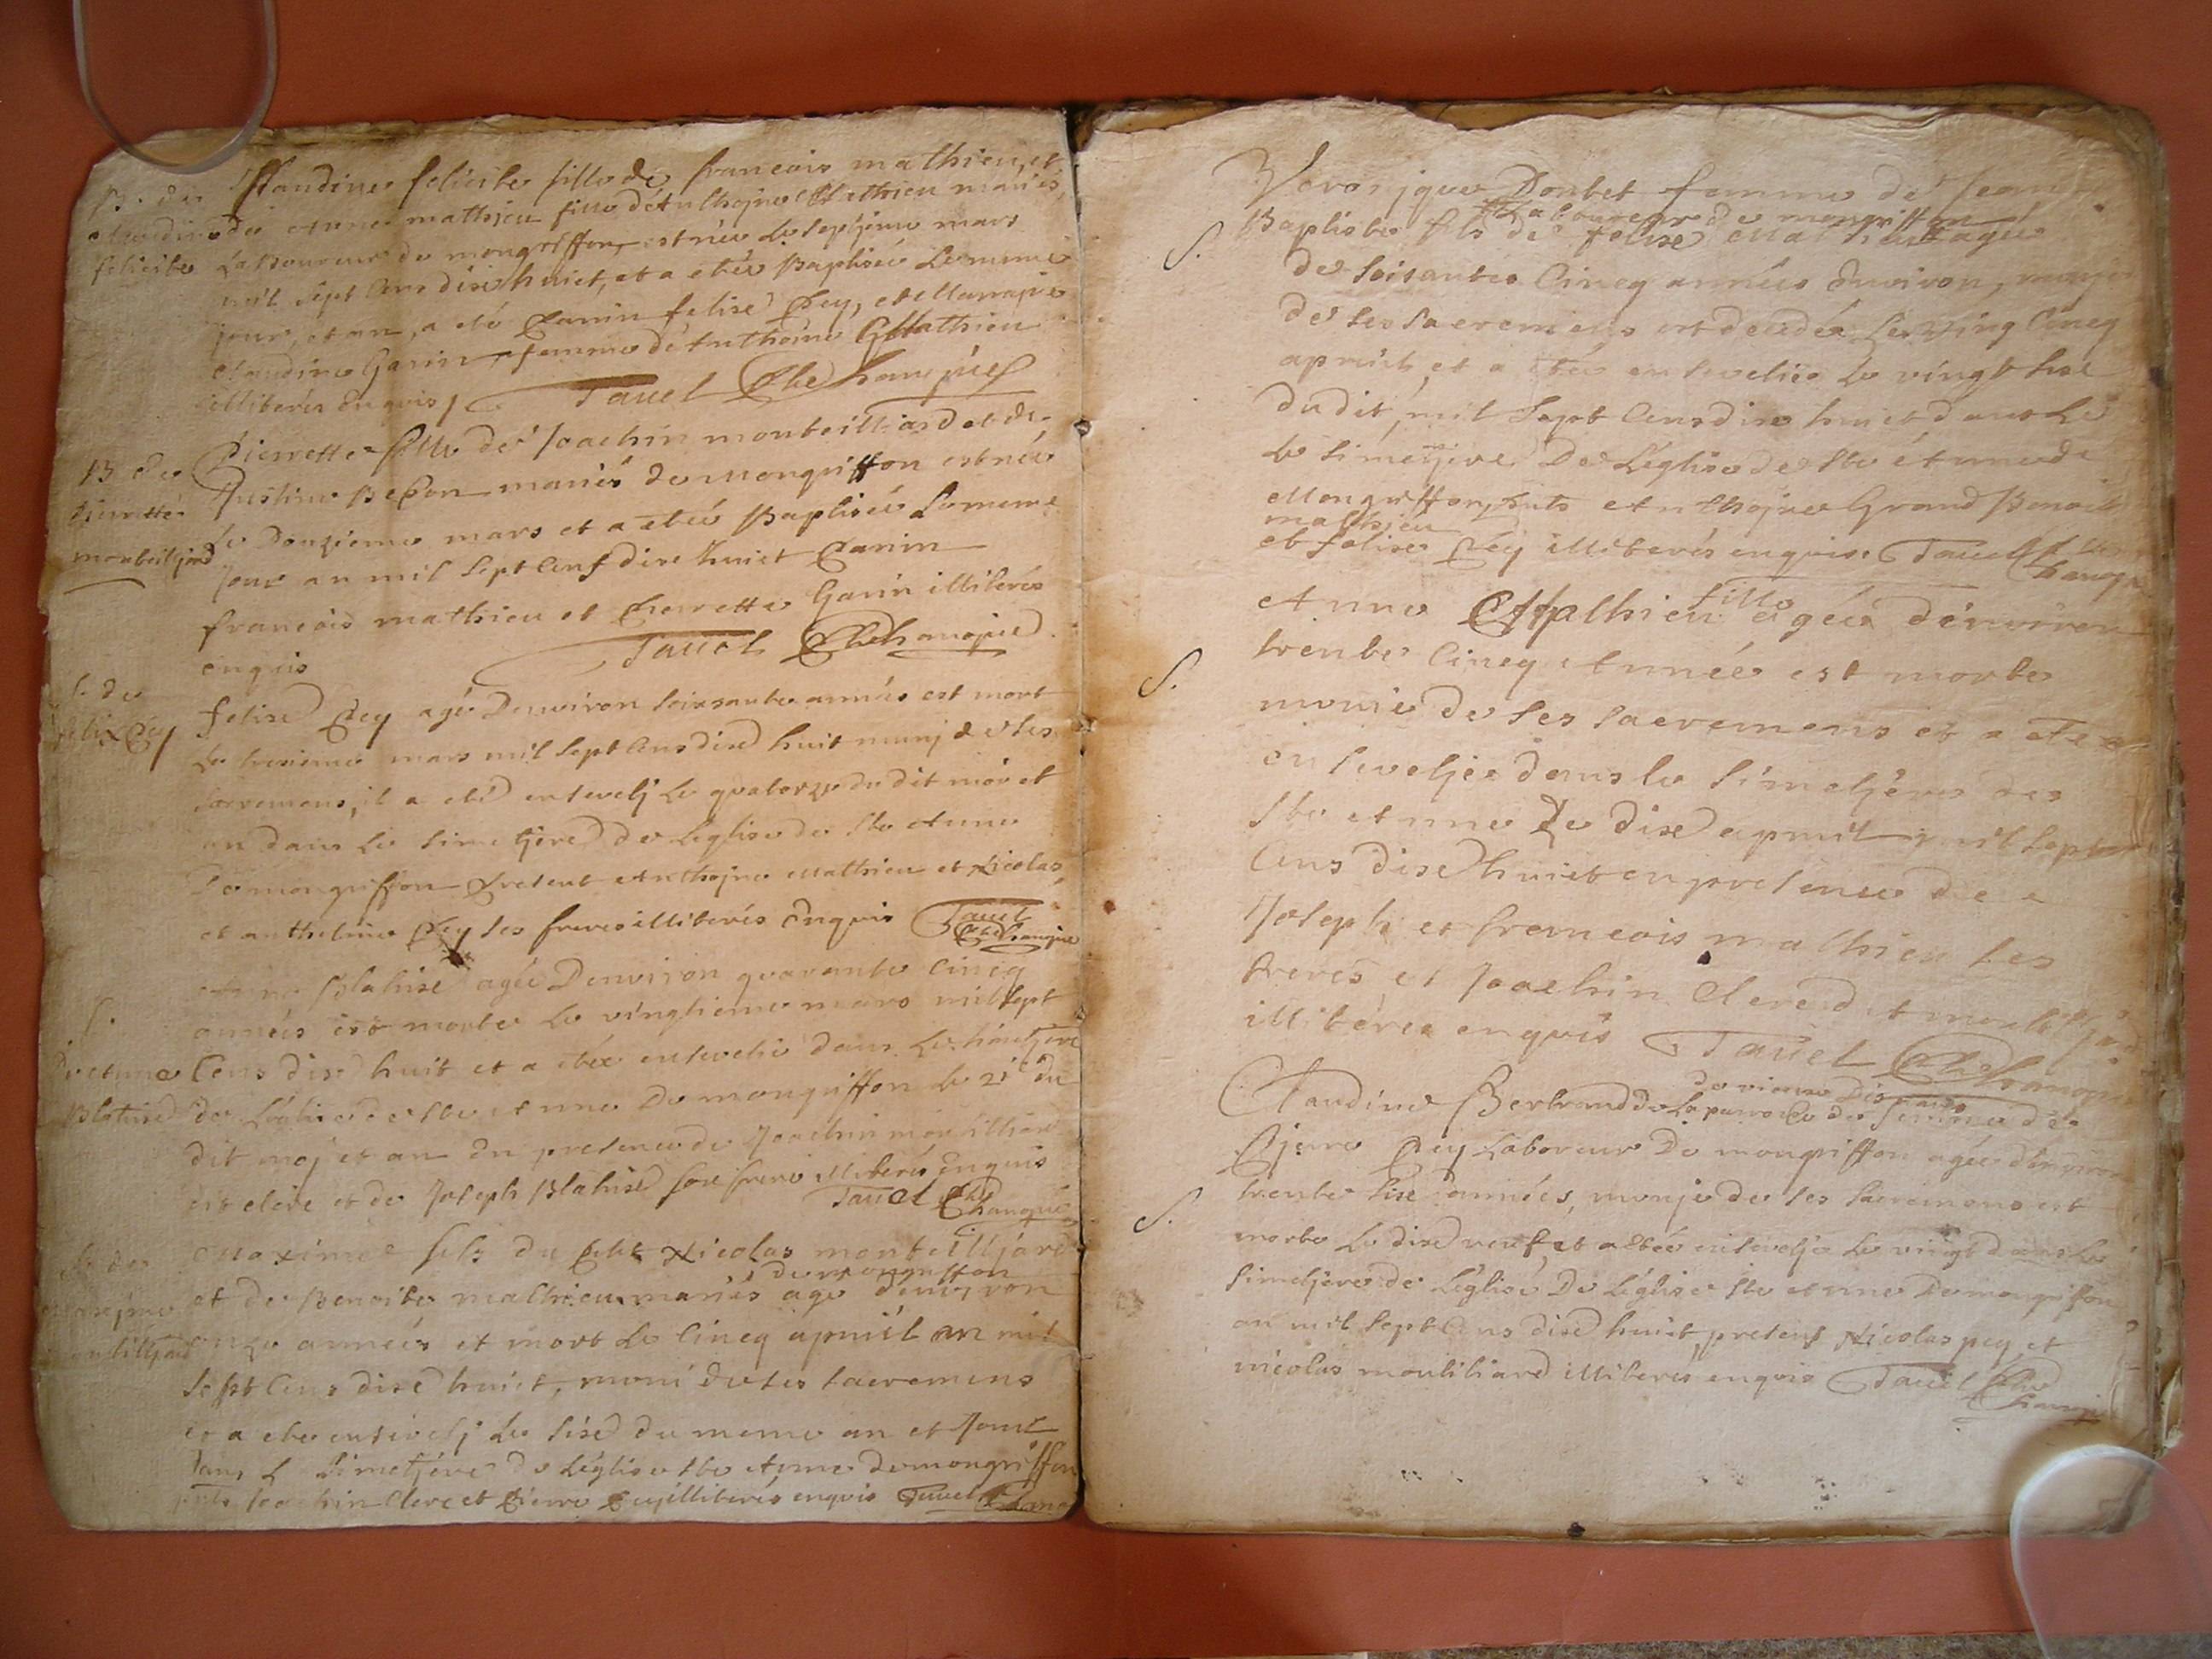 B. de
Claudine
felicite
Claudine felicite fille de francois mathieu et
de Anne mathieu fille d'Anthojne Mathieu mariés,
Laboureur de mongriffon, est née le septjeme mars
mil sept Cens dixe huict, et a etée Baptisée le meme
jour, et an, a eté Parrin felise Pey, et Marrajne
Claudine Garin, femme d'Anthoine Mathieu
illiterés enquis, Tauel
B de
pierrette
monteilljard
Pierrette fille de Joachin monteilliard et de
Justine mariés de mongriffon est née
le Douzieme mars et a etée Baptisée le meme
Jour an mil sept Cens dixe huict Parrin
francois mathieu et Pierrette Garin illiterés
enquis Tauel
S. de
felix Pey
felise Pey agé Denviron soixsante années est mort
le tresieme mars mil sept Cens dixe huit munj de ses
sacremens, il a eté ensevelj le quatorze du dit moi et
an dans le simetjere de Leglise de Ste Anne
De mongriffon Present Anthojne Mathieu et Nicolas
et anthelme Pey ses freres illiterés enquis Tauel
S.
D'Anne
Blahise
Anne Blahise agée Denviron quarante Cincq
années est morte le vingtieme mars mil sept
Cens dixe huit et a etée ensevelie dans le simetjere
de Léglise de Ste Anne De mongriffon le 21e du
dit moj et an En presence de Joachin
et de Joseph Blahise son frere illiterés enquis
Tauel
S. de
maxime
Maxime fils du petit Nicolas monteilljard
de mongriffon
et de Benoite mathieu mariés agé denviron
onze années et mort le Cincq apruil an mil
sept Cens dixe huict, muni de ses sacremens
et a ete ensevelj le sixe du meme an et
dans L simetjere de Léglise Ste Anne de mongriffon
pnts Joachin Clerc et Pierre Pey illiterés enquis Tauel
Veronjque Doubet femme de Jean
Laboureur de mongriffon
S.
Baptiste fils de felise Mathieu agée
de soisante Cincq années Environ, munje
de ses sacremens est decedée le vingt Cincq
apruil, et a etée ensevelie le vingt sixe
dudit, mil sept Cens dixe huict dans le
le simetjere De Léglise de Ste Anne de
Mongriffon, pnts Anthojne Grand Benoit
mathieu
et felise Pey illiterés enquis Tauel
fille
Anne Mathieu agée denviron
S.
trente Cincq Année est morte
munie de ses sacremens et a etée
enseveljee dans le simetjere de
Ste Anne Le dixe apruil mil sept
Cens dixe huict en presence de
Joseph et francois mathieu ses
freres et Joachin Clerc
illiterés enquis Tauel
Claudine Bertrand de La paroice de femme de
Pjerre Pey Laboreur De mongriffon agée denviron
S.
trente sixe années, munje de ses sacremens est
morte le dixe neuf et a etée ensevelje le vingt dans le
simetjere de Léglise De Léglise Ste Anne De mongriffon
an mil sept Cens dixe huict, presens Nicolas pey et
nicolas illiterés enquis Tauel